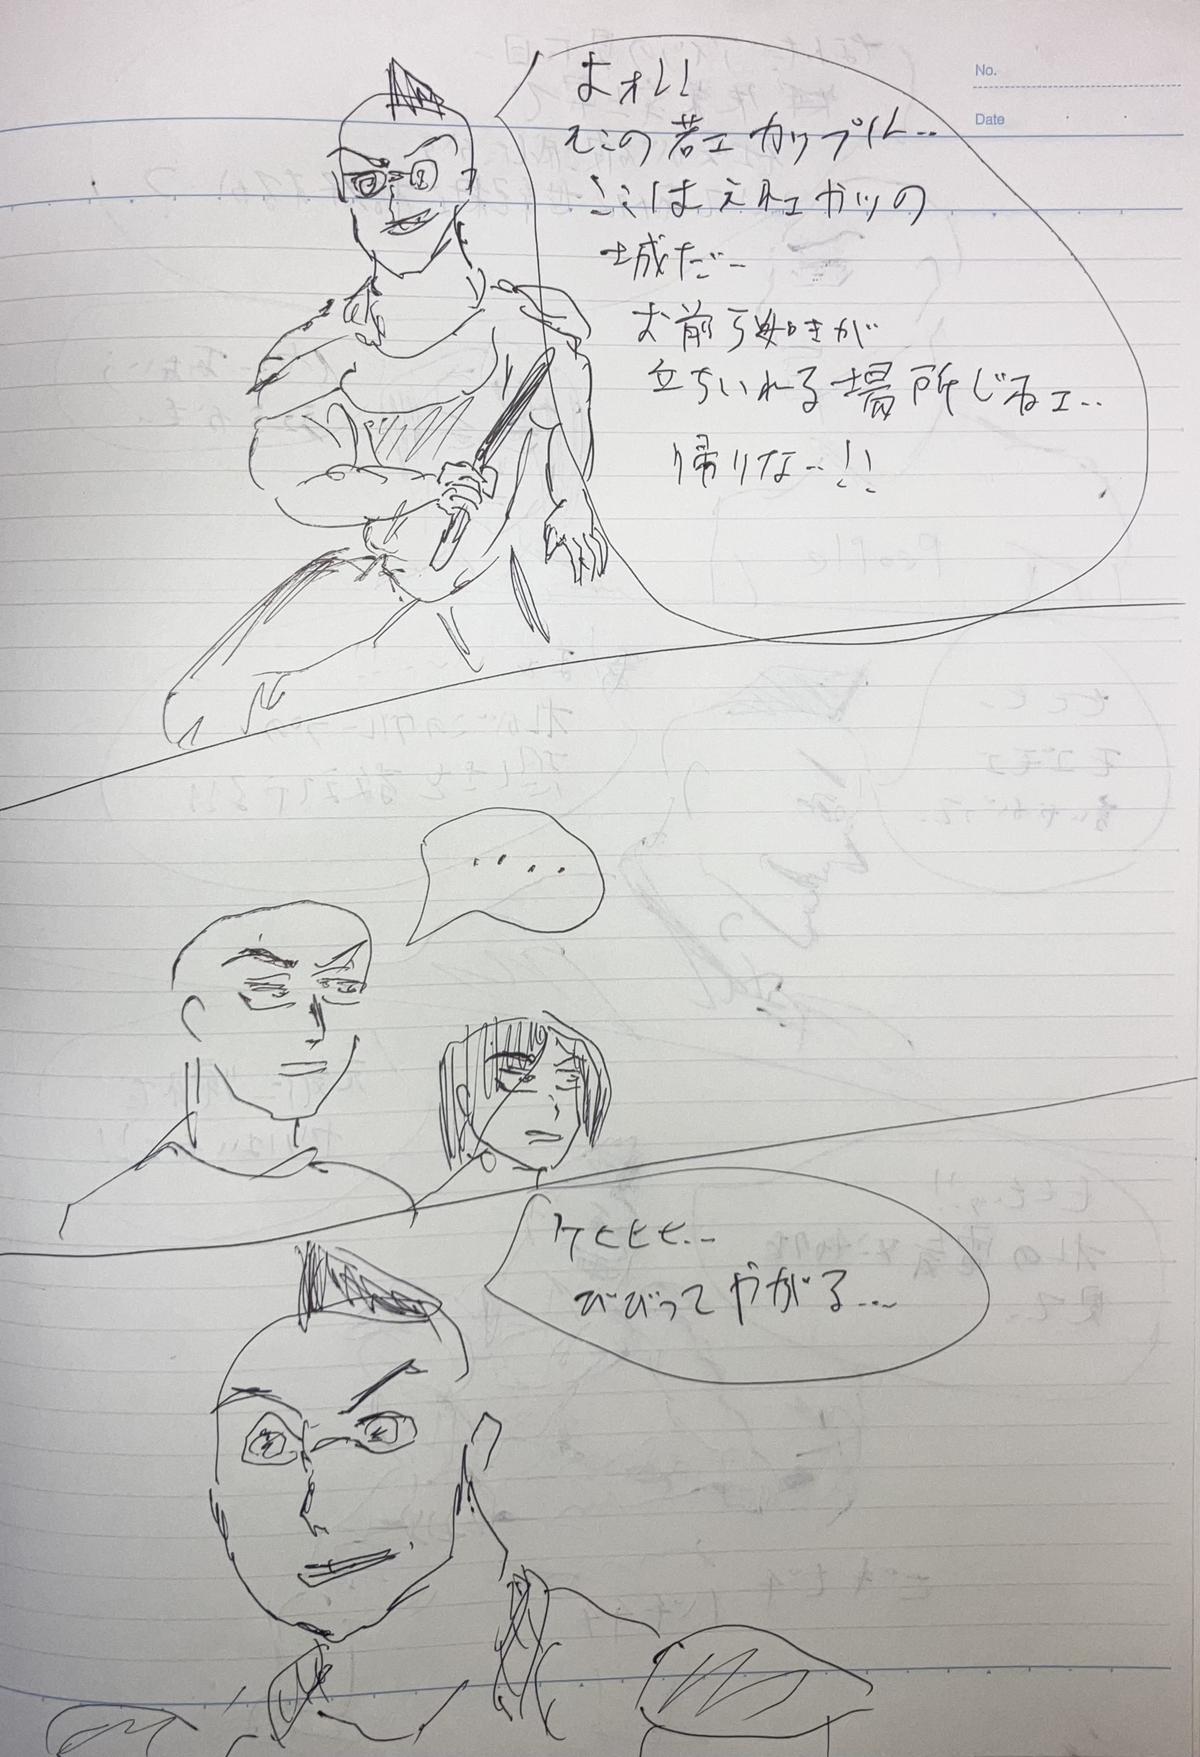 No.
Date
よォ!!
そこの若エカップルよ‥
ここはオレエガツの
城だ‥
お前ら如きが
立ちいれる場所じねエ‥
帰りな‥!!
‥‥
ケヒヒヒ‥
びびってやがる…